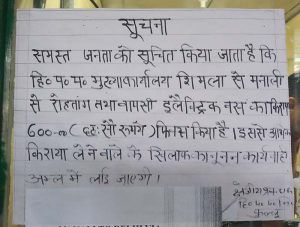 सूचना
समस्त जनता को सूचित किया जाता है कि
हि० प० प० मुख्याकार्यालय शिमला से मनाली
से रोहतांग तथा वापसी इलैक्ट्रिक बस का किराया
600-00 ( छः सौ रूपये ) फिक्स किया है । इससे अधिक
किराया लेने वाले के खिलाफ कानूनन कार्यवाही
अमल में लाई जाएगी ।
हि० प० प० नि०
कुल्लू